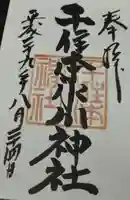 奉拝
千住本氷川神社
平成二十九年八月二十四日